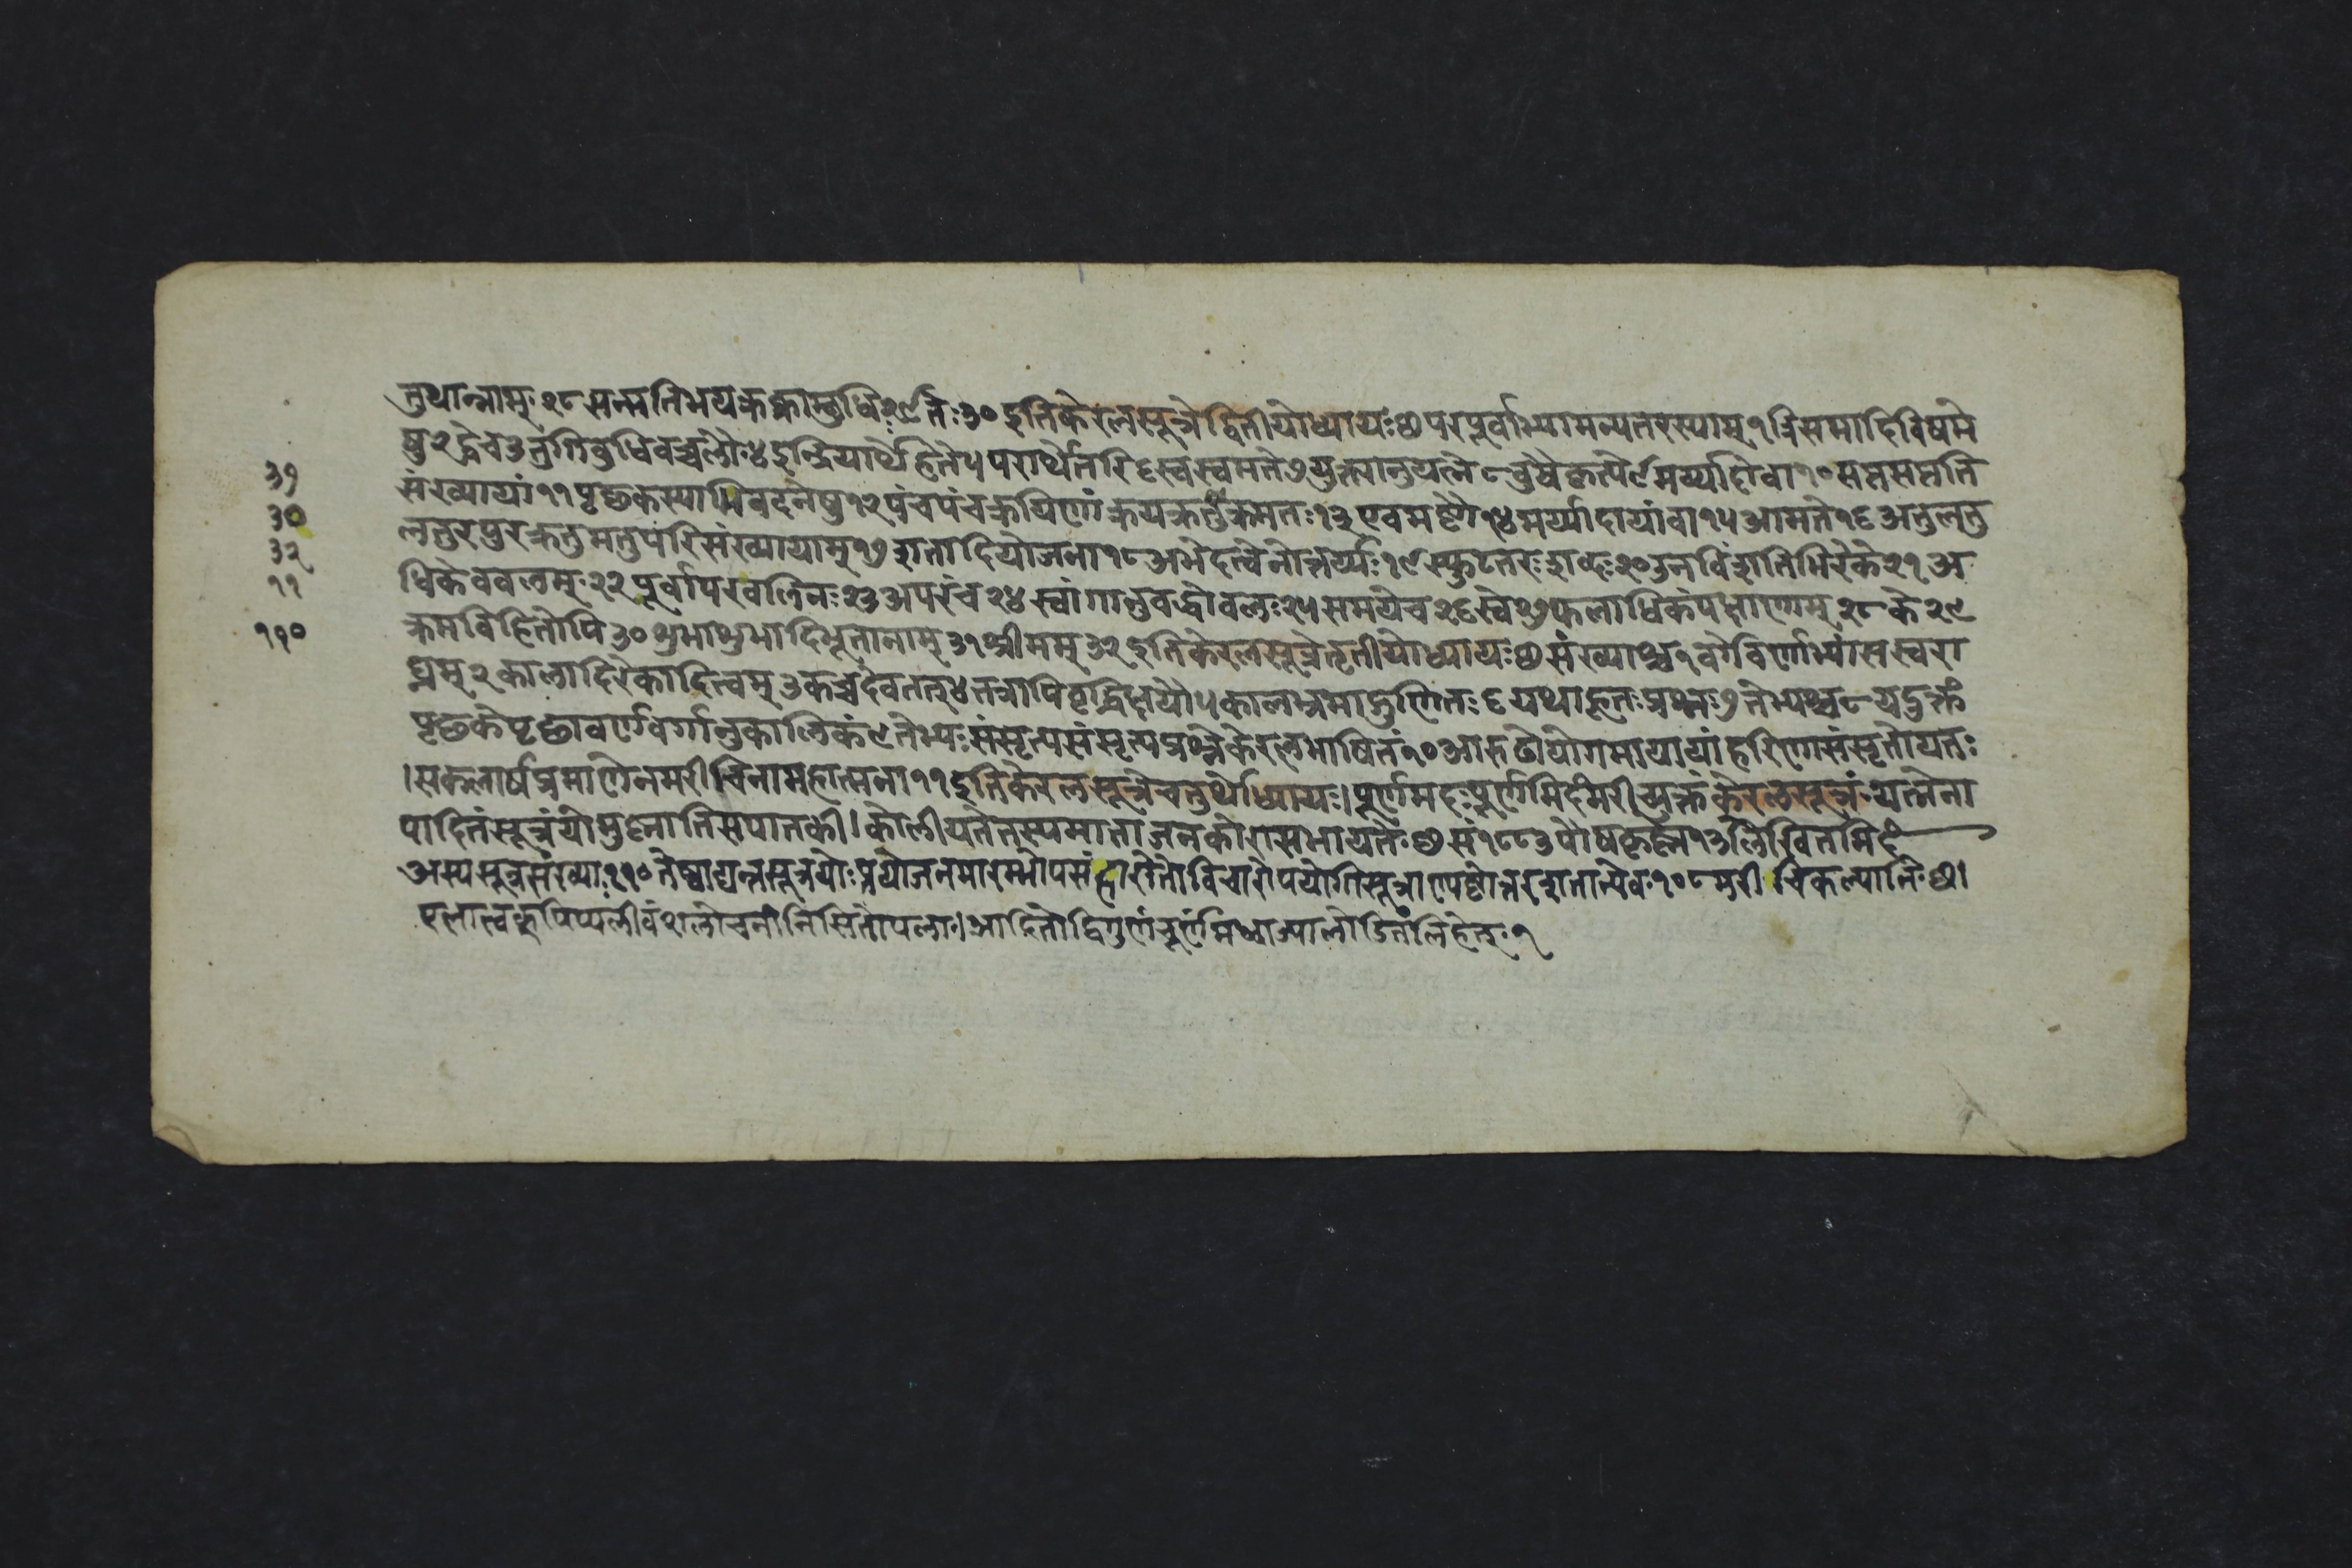 तुथान्त्राम् २८ सन्मतिभयक्रकास्तुधि २९ तेः ३० इतिकेरलसूत्रे द्वितीयोध्यायः ॥ परपूर्वाभ्यामन्यतरस्याम् १ त्रिसमादिविषमे
षु २ द्वेच ३ नुगिवुधिवच्चलौः ४ इन्द्रियार्थेहिते ५ परार्थेतरि ६ स्वंस्वमते ७ युक्त्यानुयत्ने ८ ९ मय्यदिवा १० सप्तसप्तति
संख्यायां ११ पृछकस्याभिवदनेषु १२ पंचपंचक्रयिणां १३ एवमष्टौ १४ मर्य्यादायांवा १५ आमते १६ अतुलतु
लतुरपुरक्रतुमतुपरिसंख्यायाम् १७ शतादियोजना १८ अभेदत्वेनोत्तर्य्यः १९ स्फुटतरःशब्दः २० उनविंशतिभिरेके २१ अ
धिकेववलम् २२ पूर्वापरवलिनः २३ अपरंच २४ स्वांगानुवद्धोवलः २५ समयेच २६ स्वे २७ फलाधिकंपक्षाणाम् २८ के २९
क्रमविहितोपि ३० शुभाशुभादिभूतानाम् ३१ श्रीमम् ३२ इतिकेरलसूत्रेतृतीयोध्यायः ॥ संख्याश्च १ वर्गेवर्णाभ्यांसस्वरा
घ्नम् २ कालादिरेकादित्वम् ३ कच्चदैवतत् ४ तत्रापिवृद्धिक्षयौ ५ कालभ्रमाद्गुणितः ६ यथाहूतःप्रश्नः ७ तेभ्यश्च ८ यदुक्तं
पृछकेपृछावर्णेवर्गानुकालिकं ९ तेभ्यःसंसृत्यसंसृत्यप्रश्नेकेरलभाषितं १० आरुढोयोगमायायांहरिणासंसृतोयतः
। सकलार्षप्रमाणेनमरीचिनामहात्मना ११ इतिकेरलसूत्रेचतुर्थोध्यायः । पूर्णमदःपूर्णमिदंमरीच्युक्तंकेरलसूत्रं यत्नेना
पादितंसूत्रंयोमुष्नातिसपातकी । कोलीयतेतस्यमाताजनकोरासभायते ॥ सं १८८३ पौषकृष्ण १३ लिखितमिदं
अस्यसूत्रसंख्या ११० तेष्वाद्यन्तसूत्रयोःप्रयोजनमारम्भोपसंहारोतोविचारोपयोगिसूत्राण्यष्टोत्तरशतान्येव १०८ मरीचिकल्पानि ॥
एलात्वकपिप्पलीवंशलोचनानिसितोपला । आदितोद्विगुणंचूर्णंमध्वाज्यालोडितंलिहेत् १
३७
३०
३२
११
११०